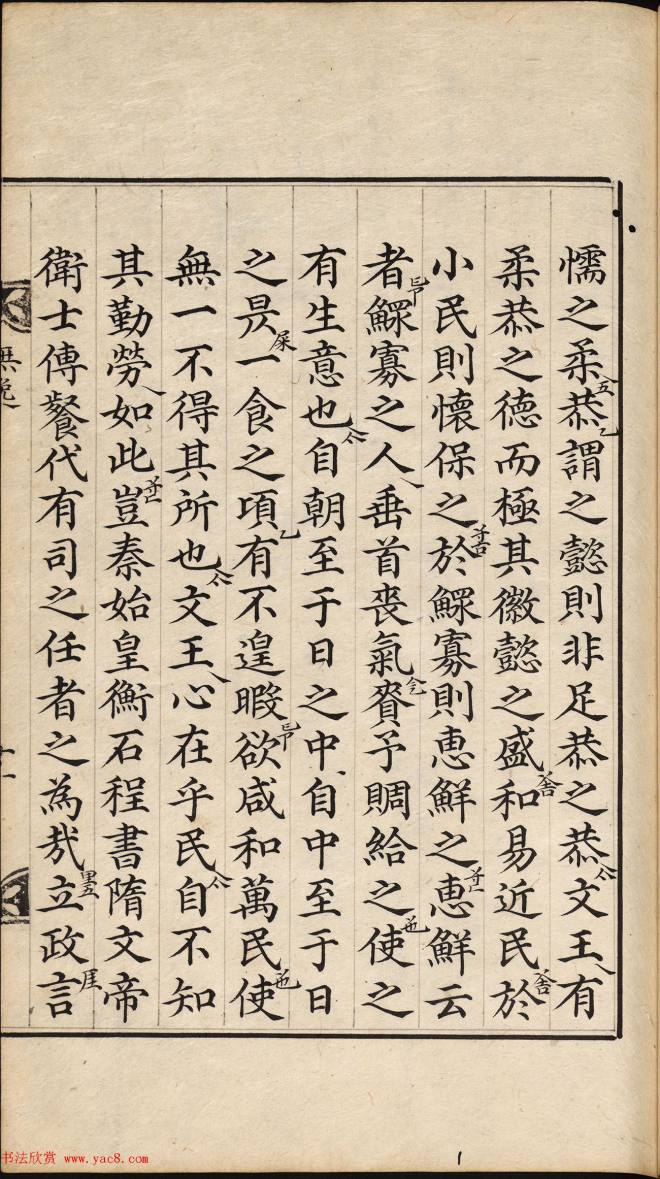 懦之柔恭謂之懿則非足恭之恭文王有
柔恭之德而極其徽懿之盛和易近民於
小民則懷保之於鰥寡則惠鮮之惠鮮云
者鰥寡之人垂首喪氣賚予賙給之使之
有生意也自朝至于日之中自中至于日
之昃一食之頃有不遑暇欲咸和萬民使
無一不得其所也文王心在乎民自不知
其勤勞如此豈秦始皇衡石程書隋文帝
衛士傳餐代有司之任者之為㢤立政言
無逸
十一
书法欣赏 www.yac8.com